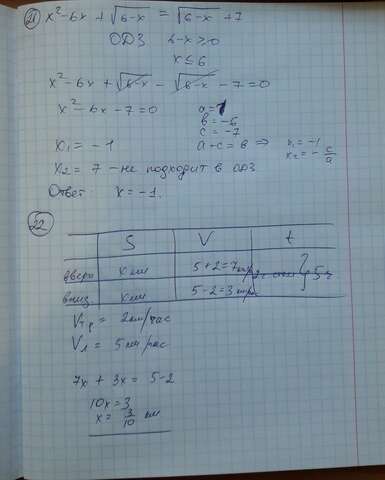 21 x² - 6x + √6-x = √6-x + 7
ОДЗ 6-x ≥ 0
x ≤ 6
x² - 6x + √6-x - √6-x - 7 = 0
x² - 6x - 7 = 0 a = 1
b = -6
c = -7
x₁ = -1 a - c = b ⇒ x₁ = -1
x₂ = -c/a
x₂ = 7 - не подходит в одз
Ответ: x = -1.
22
S V t
вверх x км 5+2=7 км/ч } 5ч
вниз x км 5-2=3
Vтр = 2км/час
Vл = 5 км/час
7x + 3x = 5-2
10x = 3
x = 3/10 км